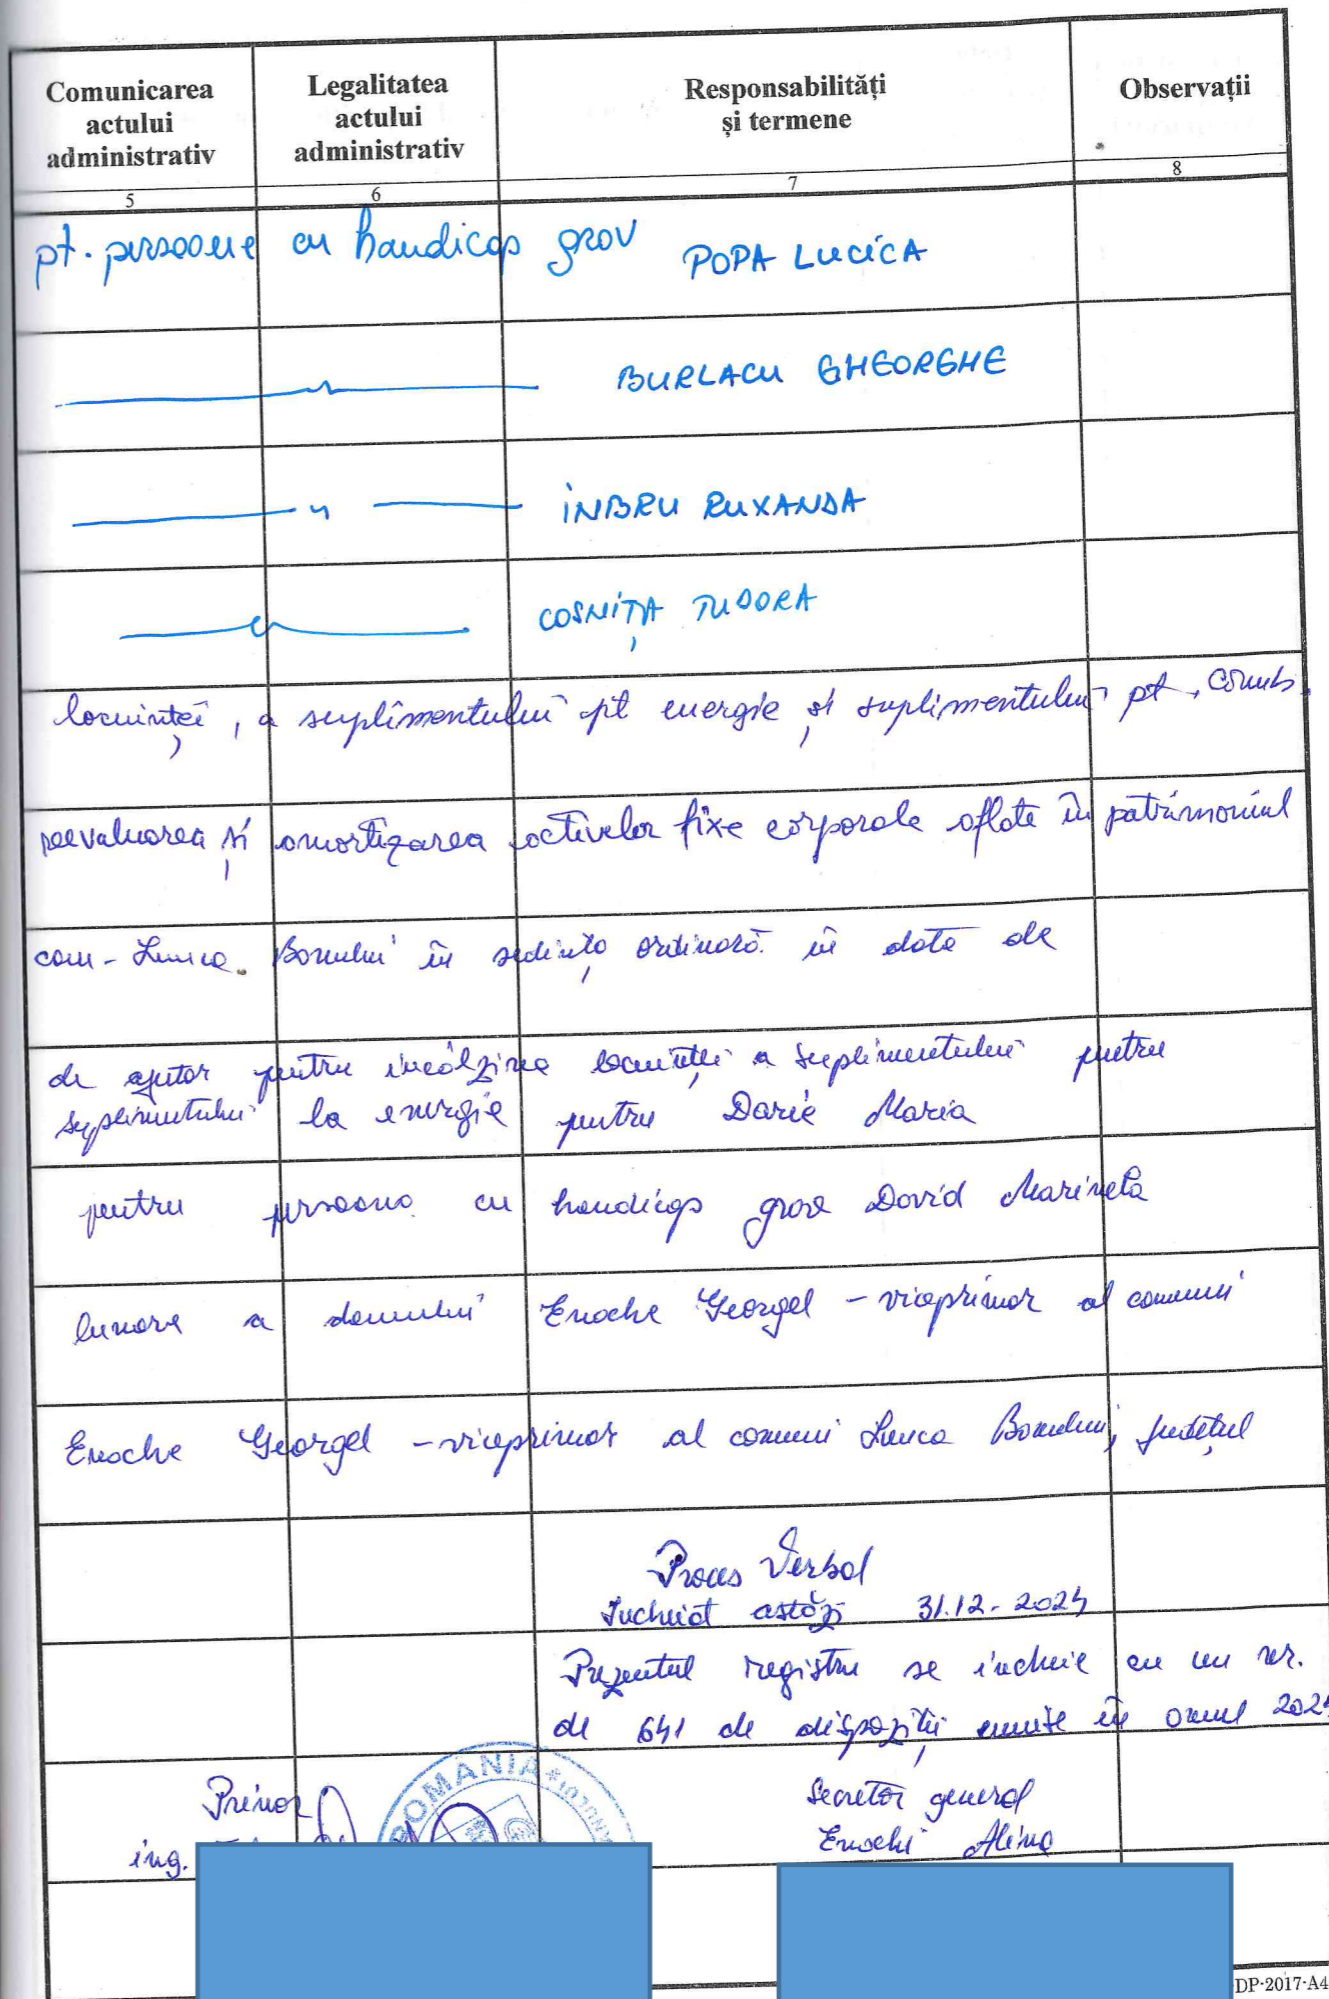 Comunicarea actului administrativ
Legalitatea actului administrativ
Responsabilități și termene
Observații
5 6 7 8
pt. persoane cu handicap grav POPA LUCICA
—— " —— BURLACU GHEORGHE
—— " —— INBRU RUXANDA
—— " —— COSNIȚA TUDORA
locuinței, a suplimentului pt energie și suplimentului pt. comb.
reevaluarea și amortizarea activelor fixe corporale aflate în patrimoniul
com. Lunca Banului în ședința ordinară în data de
de ajutor pentru încălzirea locuinței a suplimentului pentru
suplimentului la energie pentru Darie Maria
pentru persoana cu handicap grav David Marineta
lunare a domnului Enache Georgel - viceprimar al comunii
Enache Georgel - viceprimar al comunii Lunca Banului, județul
Proces Verbal
Încheiat astăzi 31.12.2024
Prezentul registru se încheie cu un nr.
de 641 de dispoziții emise în anul 2024
Primar
Secretar general
ing.
Enachi Alina
ROMANIA
DP-2017-A4